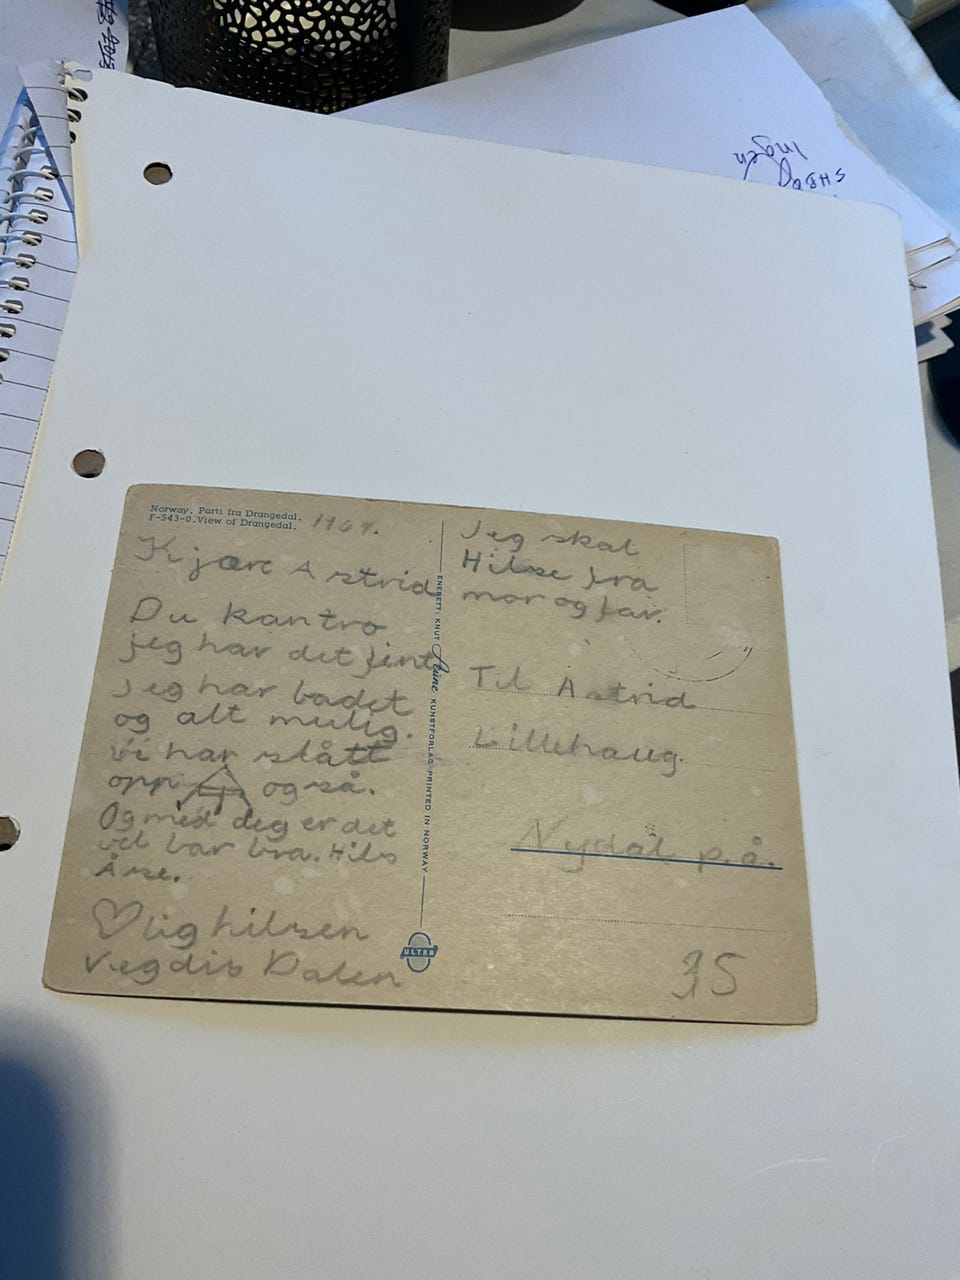 Norway. Parti fra Drangedal.
F-543-0. View of Drangedal.
1969.
Kjære Astrid
Du kan tro
jeg har det fint
Jeg har badet
og alt mulig.
vi har slått
opp også.
Og med deg er det
vel bar bra. Hils
Åse.
lig hilsen
Vegdis Dalen
ENERETT: KNUT Aune KUNSTFORLAG-PRINTED IN NORWAY
ULTRA
Jeg skal
Hilse fra
mor og far.
Til Astrid
Lillehaug.
Nydal p.å.
35
Ingen